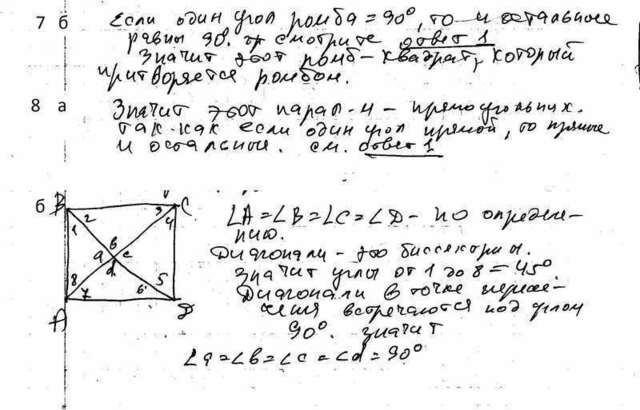 7 б Если один угол ромба = 90°, то и остальные
равны 90. смотрите ответ 1
Значит этот ромб - квадрат, который
притворяется ромбом.
8 а Значит этот парал-м - прямоугольник.
так-как если один угол прямой, то прямые
и остальные. см. ответ 1
б B 2 3 C
1 4
b
a c
d
8 5
7 6
A D
∠A = ∠B = ∠C = ∠D - по определе-
нию.
Диагонали - это биссектрисы.
Значит углы от 1 до 8 = 45°
Диагонали в точке пересе-
чения встречаются под углом
90°. значит
∠a = ∠b = ∠c = ∠d = 90°